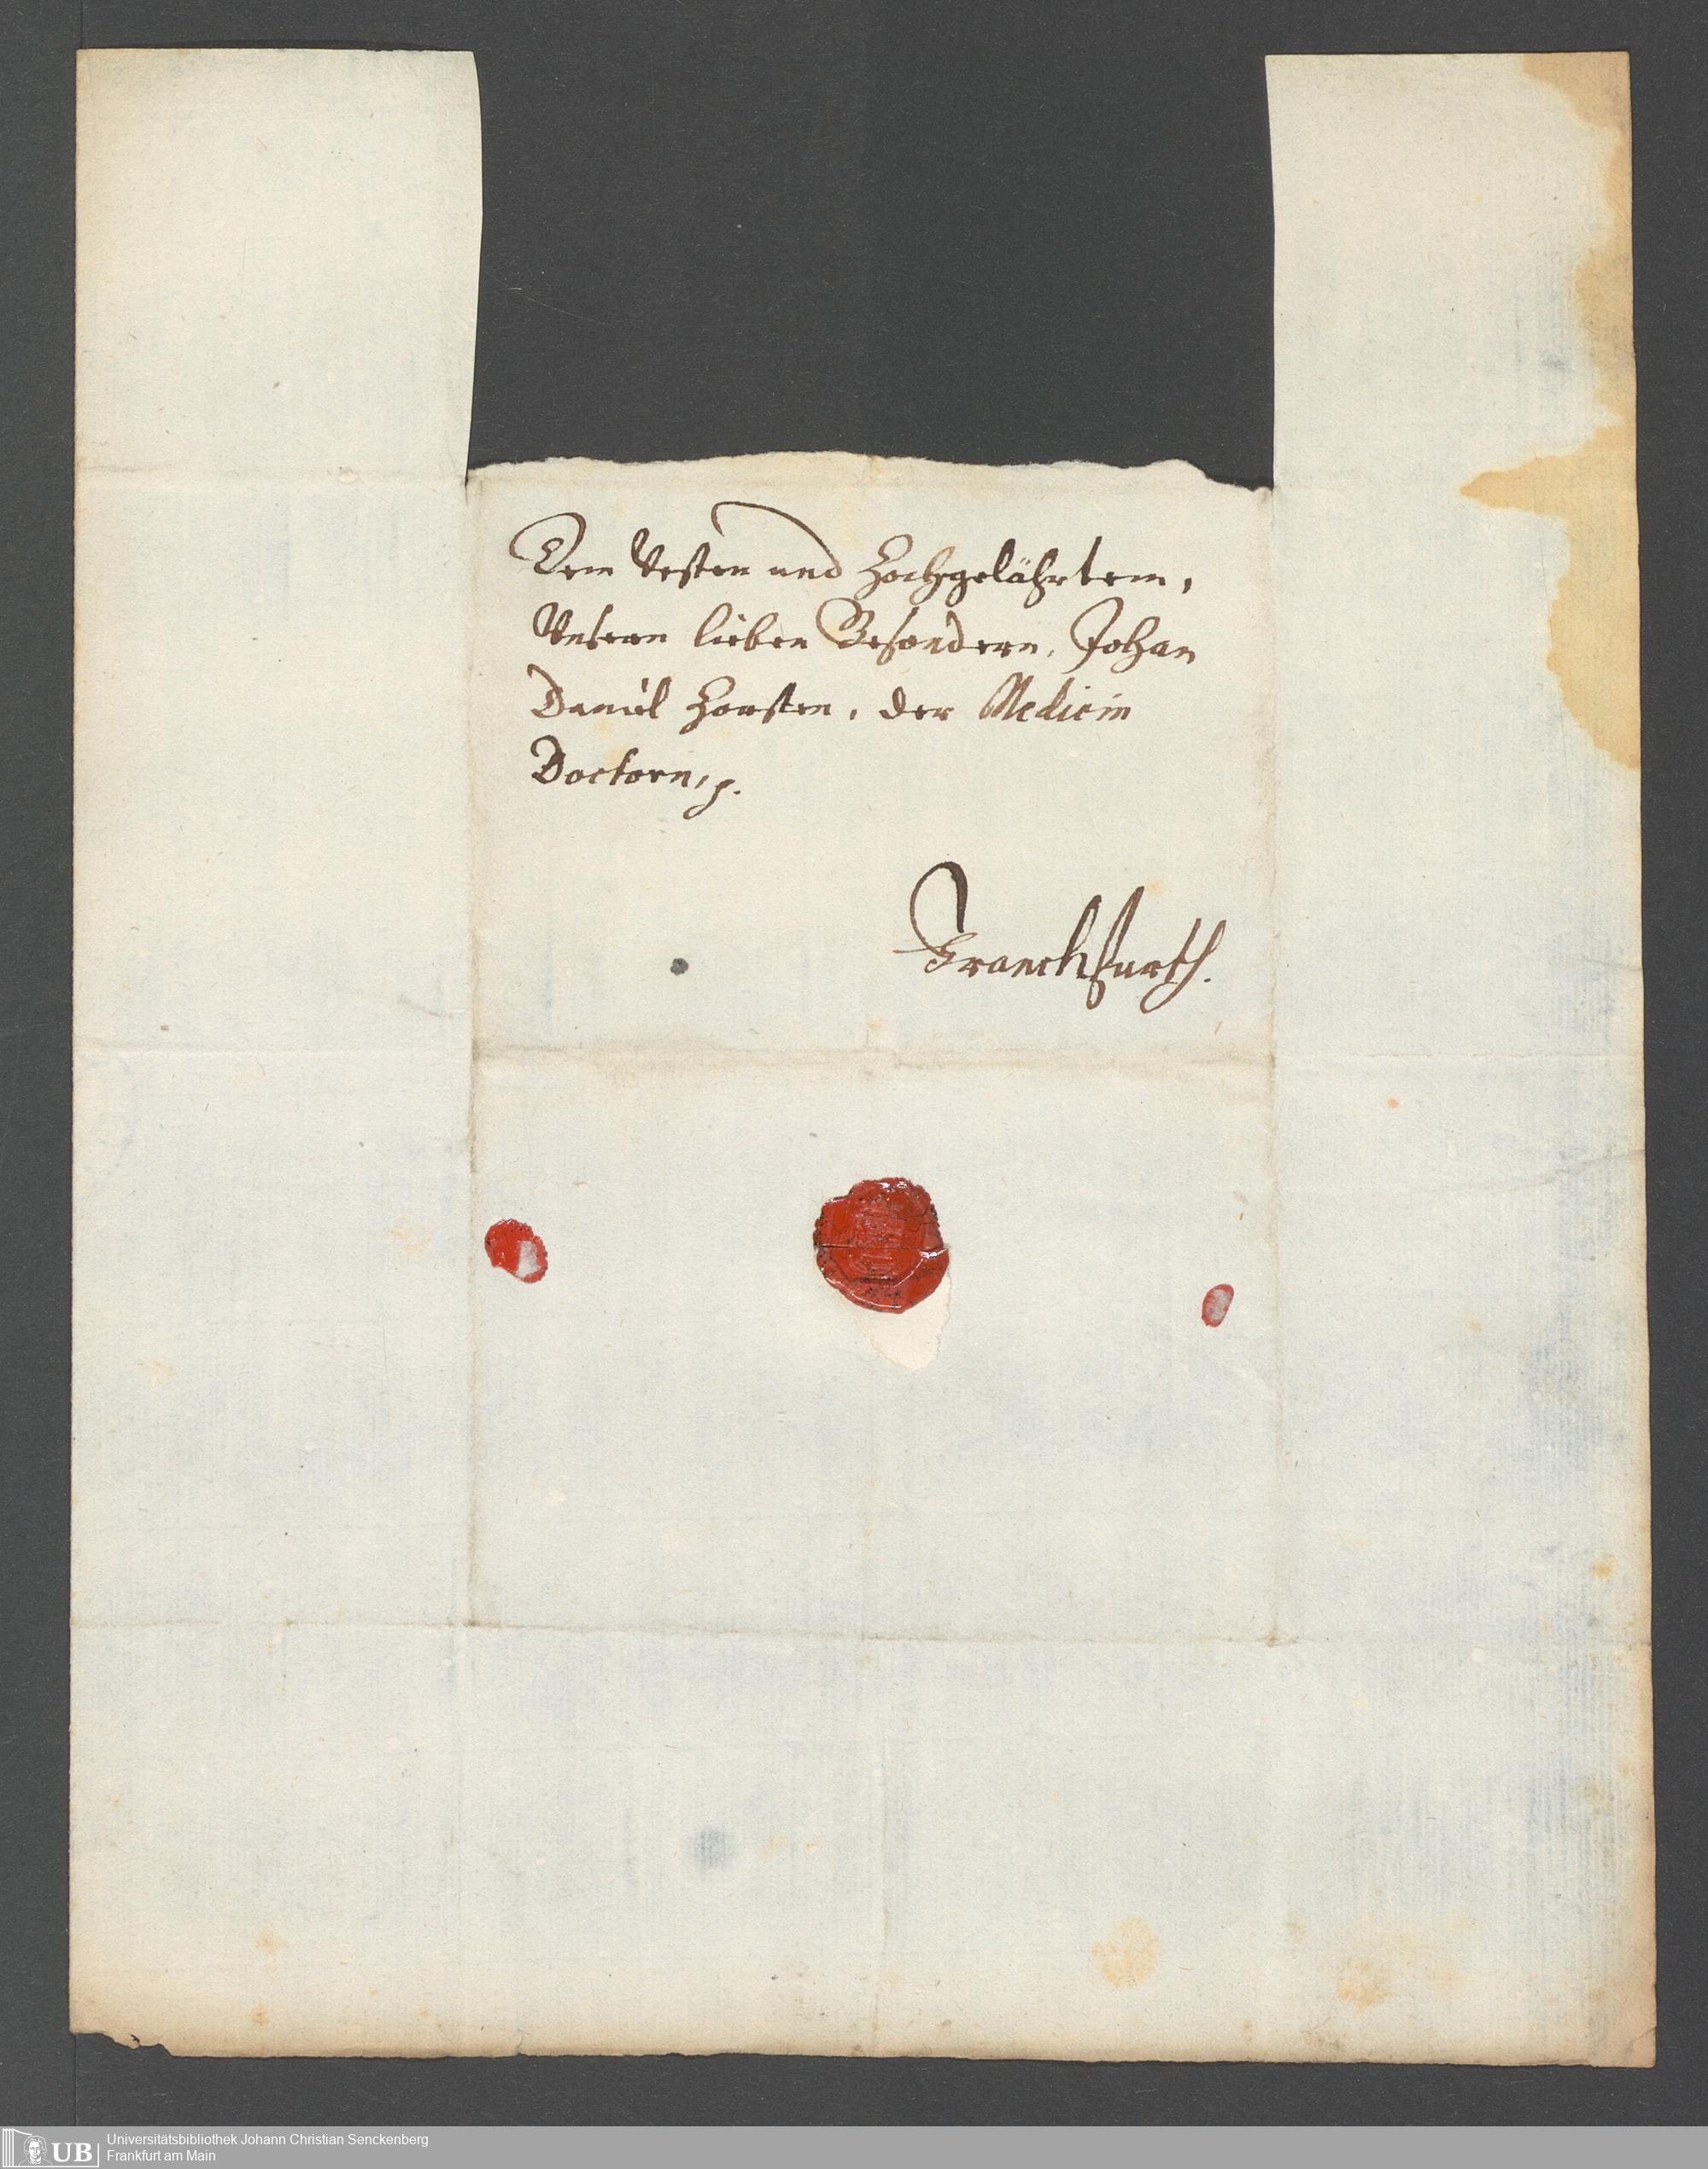 Dem Vesten und Hochgelährtem,
Unsern lieben Besondern, Johan
Daniel Horsten, der Medicin
Doctorn, p.
Franckfurth.
UB
Universitätsbibliothek Johann Christian Senckenberg
Frankfurt am Main